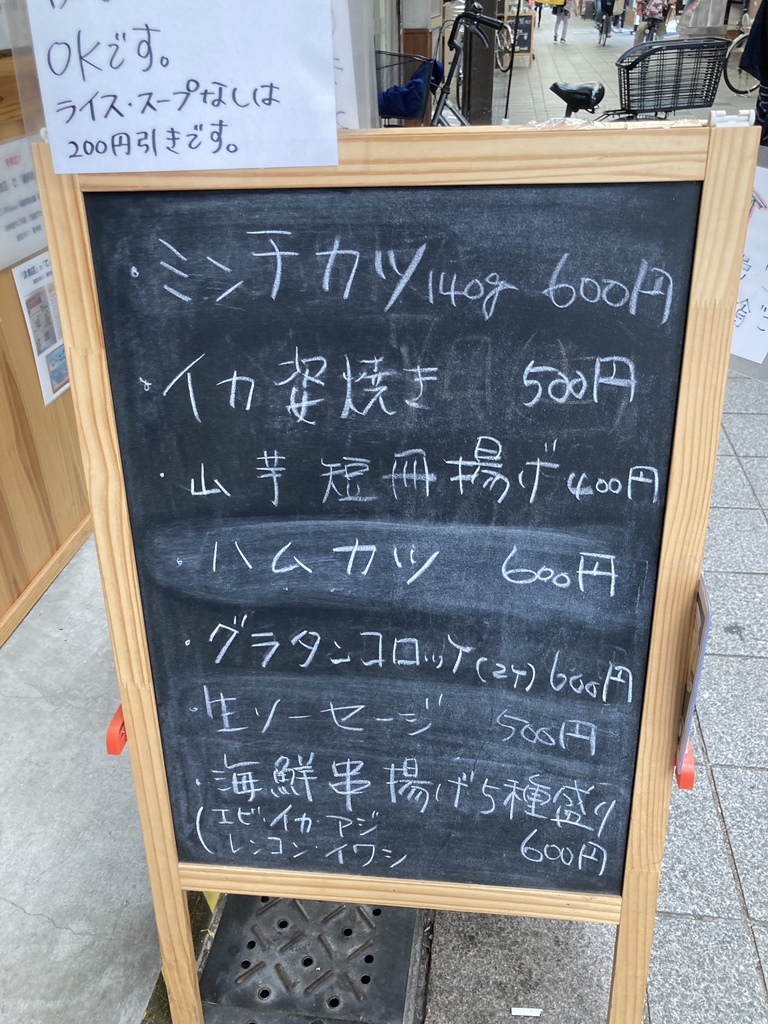 OKです。
ライス・スープなしは
200円引きです。
・ミンチカツ140g 600円
・イカ姿焼き 500円
・山芋短冊揚げ 400円
・ハムカツ 600円
・グラタンコロッケ(2ケ) 600円
・生ソーセージ 500円
・海鮮串揚げ5種盛り
(エビ・イカ・アジ
レンコン・イワシ 600円